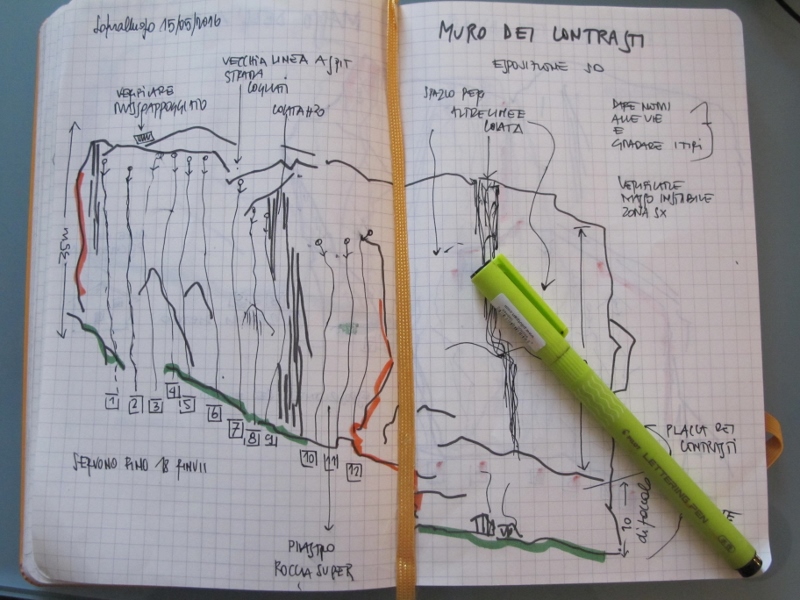 Sopralluogo 15/05/2016
VERIFICARE
MASSO APPOGGIATO
VECCHIA LINEA A SPIT
STRADA
COGLIATI
COLATA H2O
35m
1
2
3
4
5
6
7
8
9
10
11
12
SERVONO FINO 18 RINVII
PILASTRO
ROCCIA SUPER
MURO DEI CONTRASTI
ESPOSIZIONE SO
SPAZIO PER
ALTRE LINEE
COLATA
DARE NOMI
ALLE VIE
E
GRADARE I TIRI
VERIFICARE
MASSO INSTABILE
ZONA SX
PLACCA DEI
CONTRASTI
10
di zoccolo
LETTERING PEN